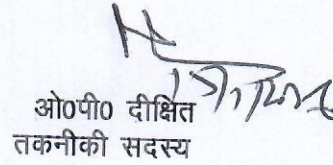 ओ0पी0 दीक्षित
तकनीकी सदस्य